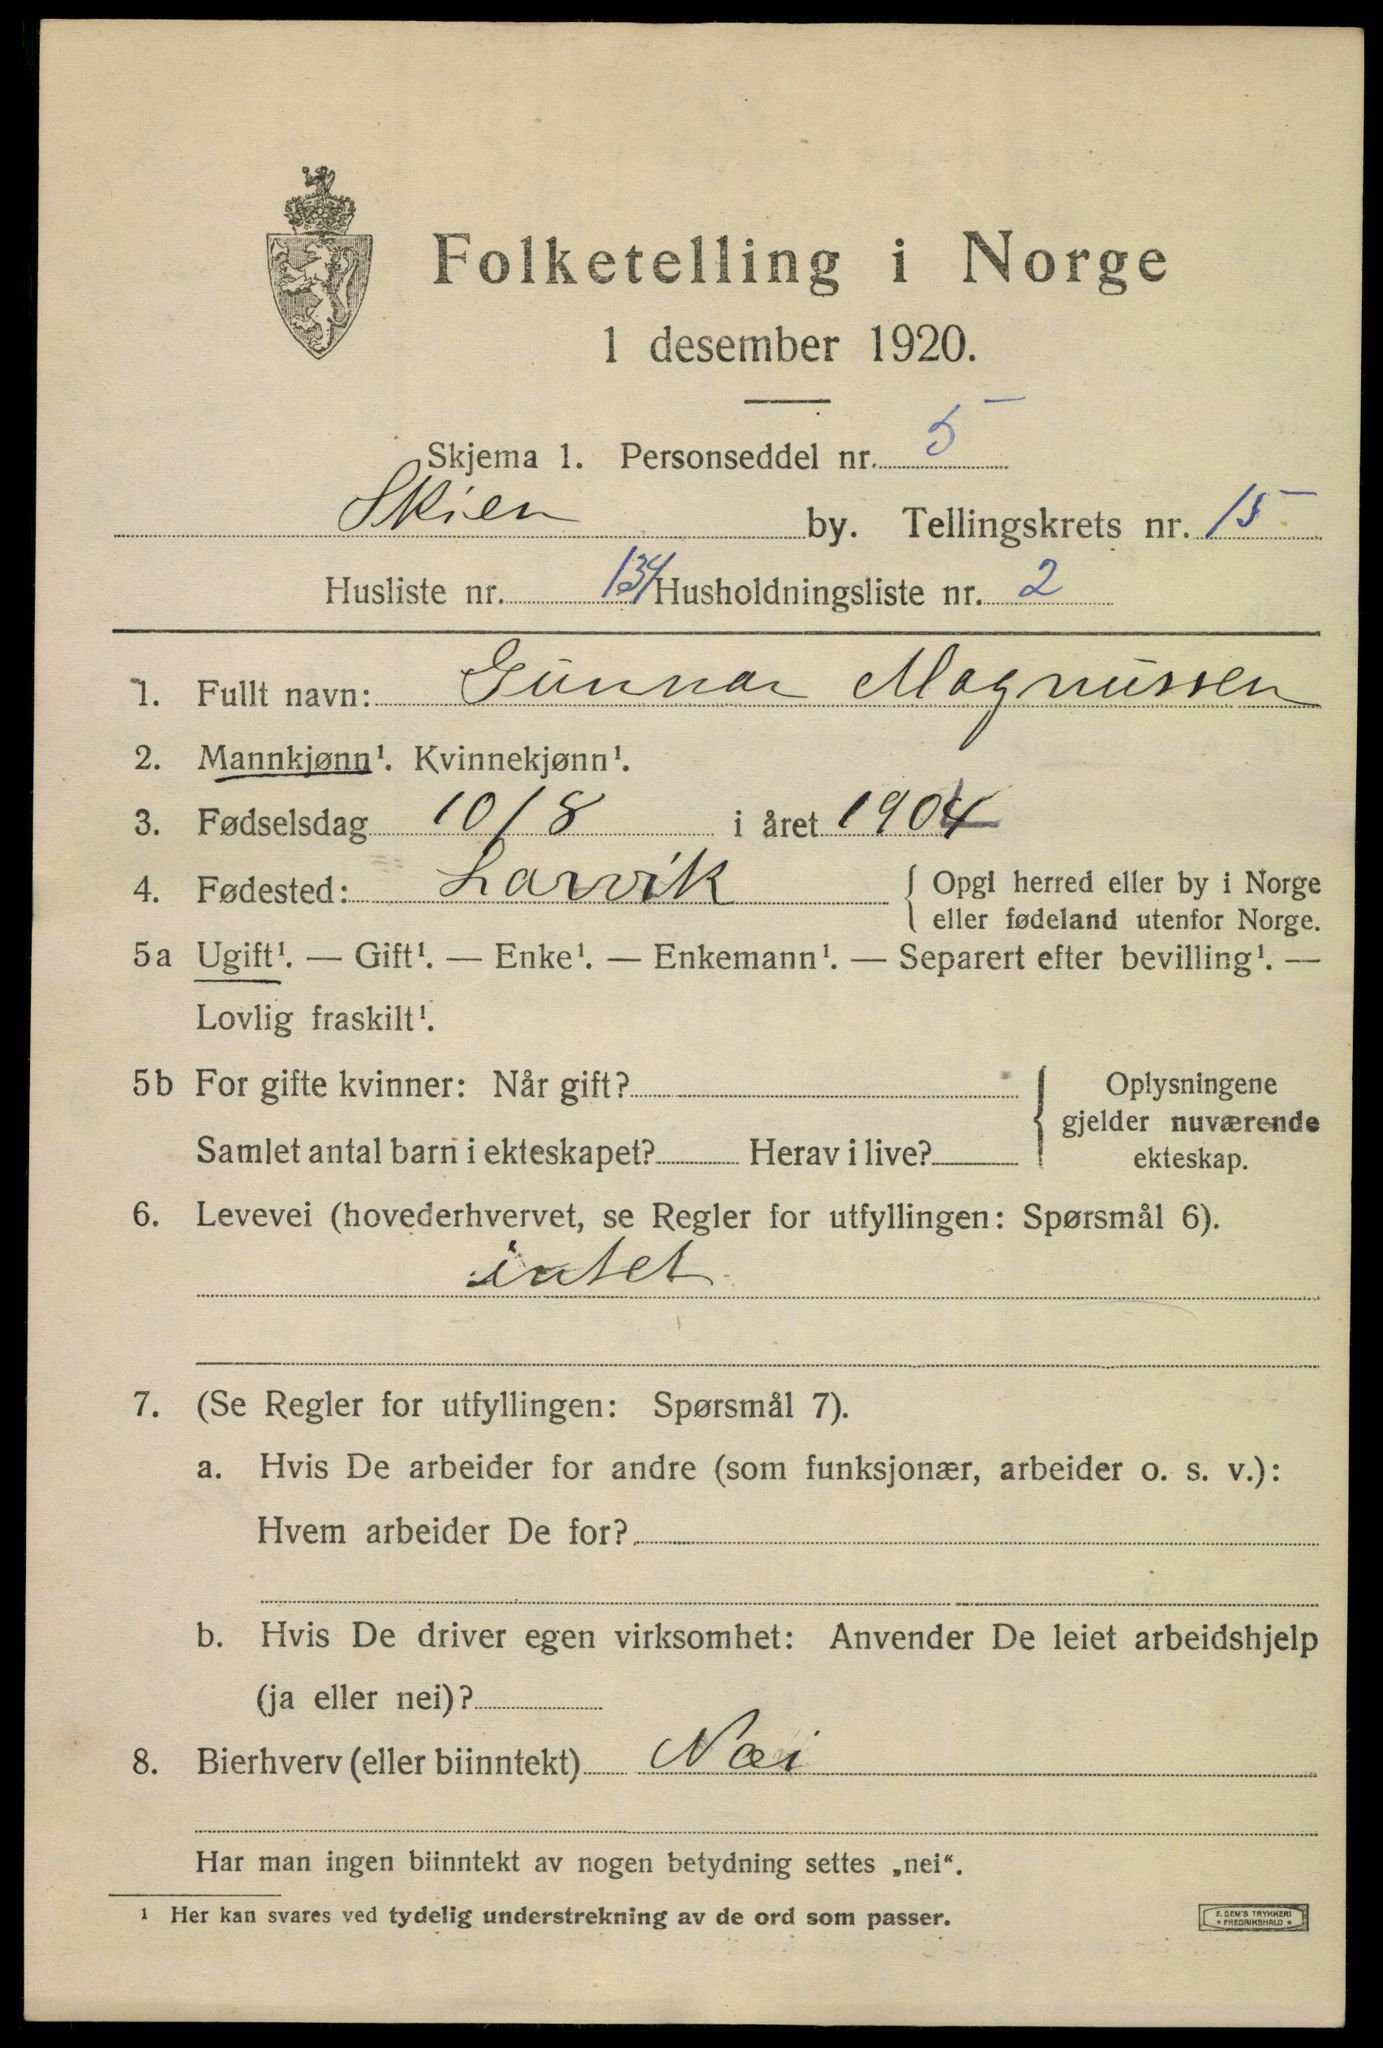 Folketelling i Norge
1 desember 1920.
Skjema 1. Personseddel nr. 5
Skien by. Tellingskrets nr. 15
Husliste nr. 134 Husholdningsliste nr. 2
1. Fullt navn: Gunnar Magnussen
2. Mannkjønn¹. Kvinnekjønn¹.
3. Fødselsdag 10/8 i året 1904
4. Fødested: Larvik { Opgl herred eller by i Norge
eller fødeland utenfor Norge.
5a Ugift¹. — Gift¹. — Enke¹. — Enkemann¹. — Separert efter bevilling¹. —
Lovlig fraskilt¹.
5b For gifte kvinner: Når gift? { Oplysningene
gjelder nuværende
Samlet antal barn i ekteskapet? Herav i live? ekteskap.
6. Levevei (hovederhvervet, se Regler for utfyllingen: Spørsmål 6).
intet
7. (Se Regler for utfyllingen: Spørsmål 7).
a. Hvis De arbeider for andre (som funksjonær, arbeider o. s. v.):
Hvem arbeider De for?
b. Hvis De driver egen virksomhet: Anvender De leiet arbeidshjelp
(ja eller nei)?
8. Bierhverv (eller biinntekt) Nei
Har man ingen biinntekt av nogen betydning settes „nei“.
¹ Her kan svares ved tydelig understrekning av de ord som passer.
E. SEM'S TRYKKERI
• FREDRIKSHALD •